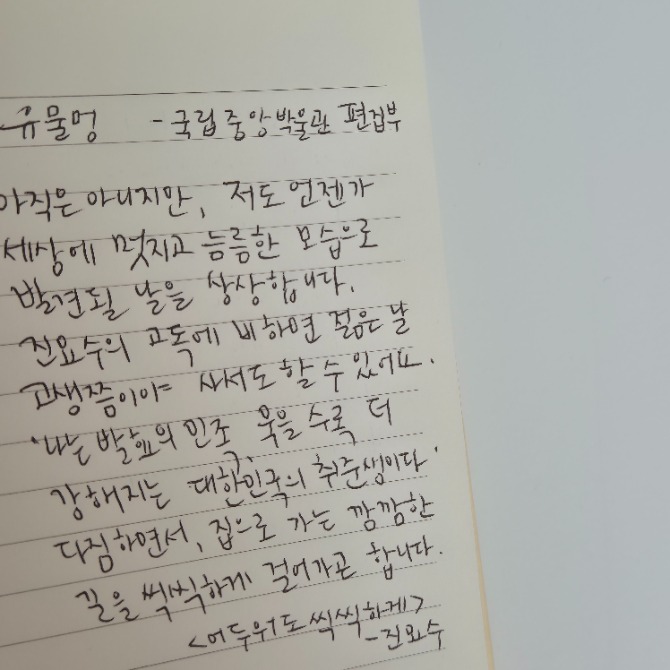 유물멍 - 국립중앙박물관 편집부
아직은 아니지만, 저도 언젠가
세상에 멋지고 늠름한 모습으로
발견될 날을 상상합니다.
진묘수의 고독에 비하면 젊은 날
고생쯤이야 사서도 할 수 있어요.
'나는 발효의 민족, 묵을수록 더
강해지는 대한민국의 취준생이다.'
다짐하면서, 집으로 가는 깜깜한
길을 씩씩하게 걸어가곤 합니다.
<어두워도 씩씩하게>
-진묘수